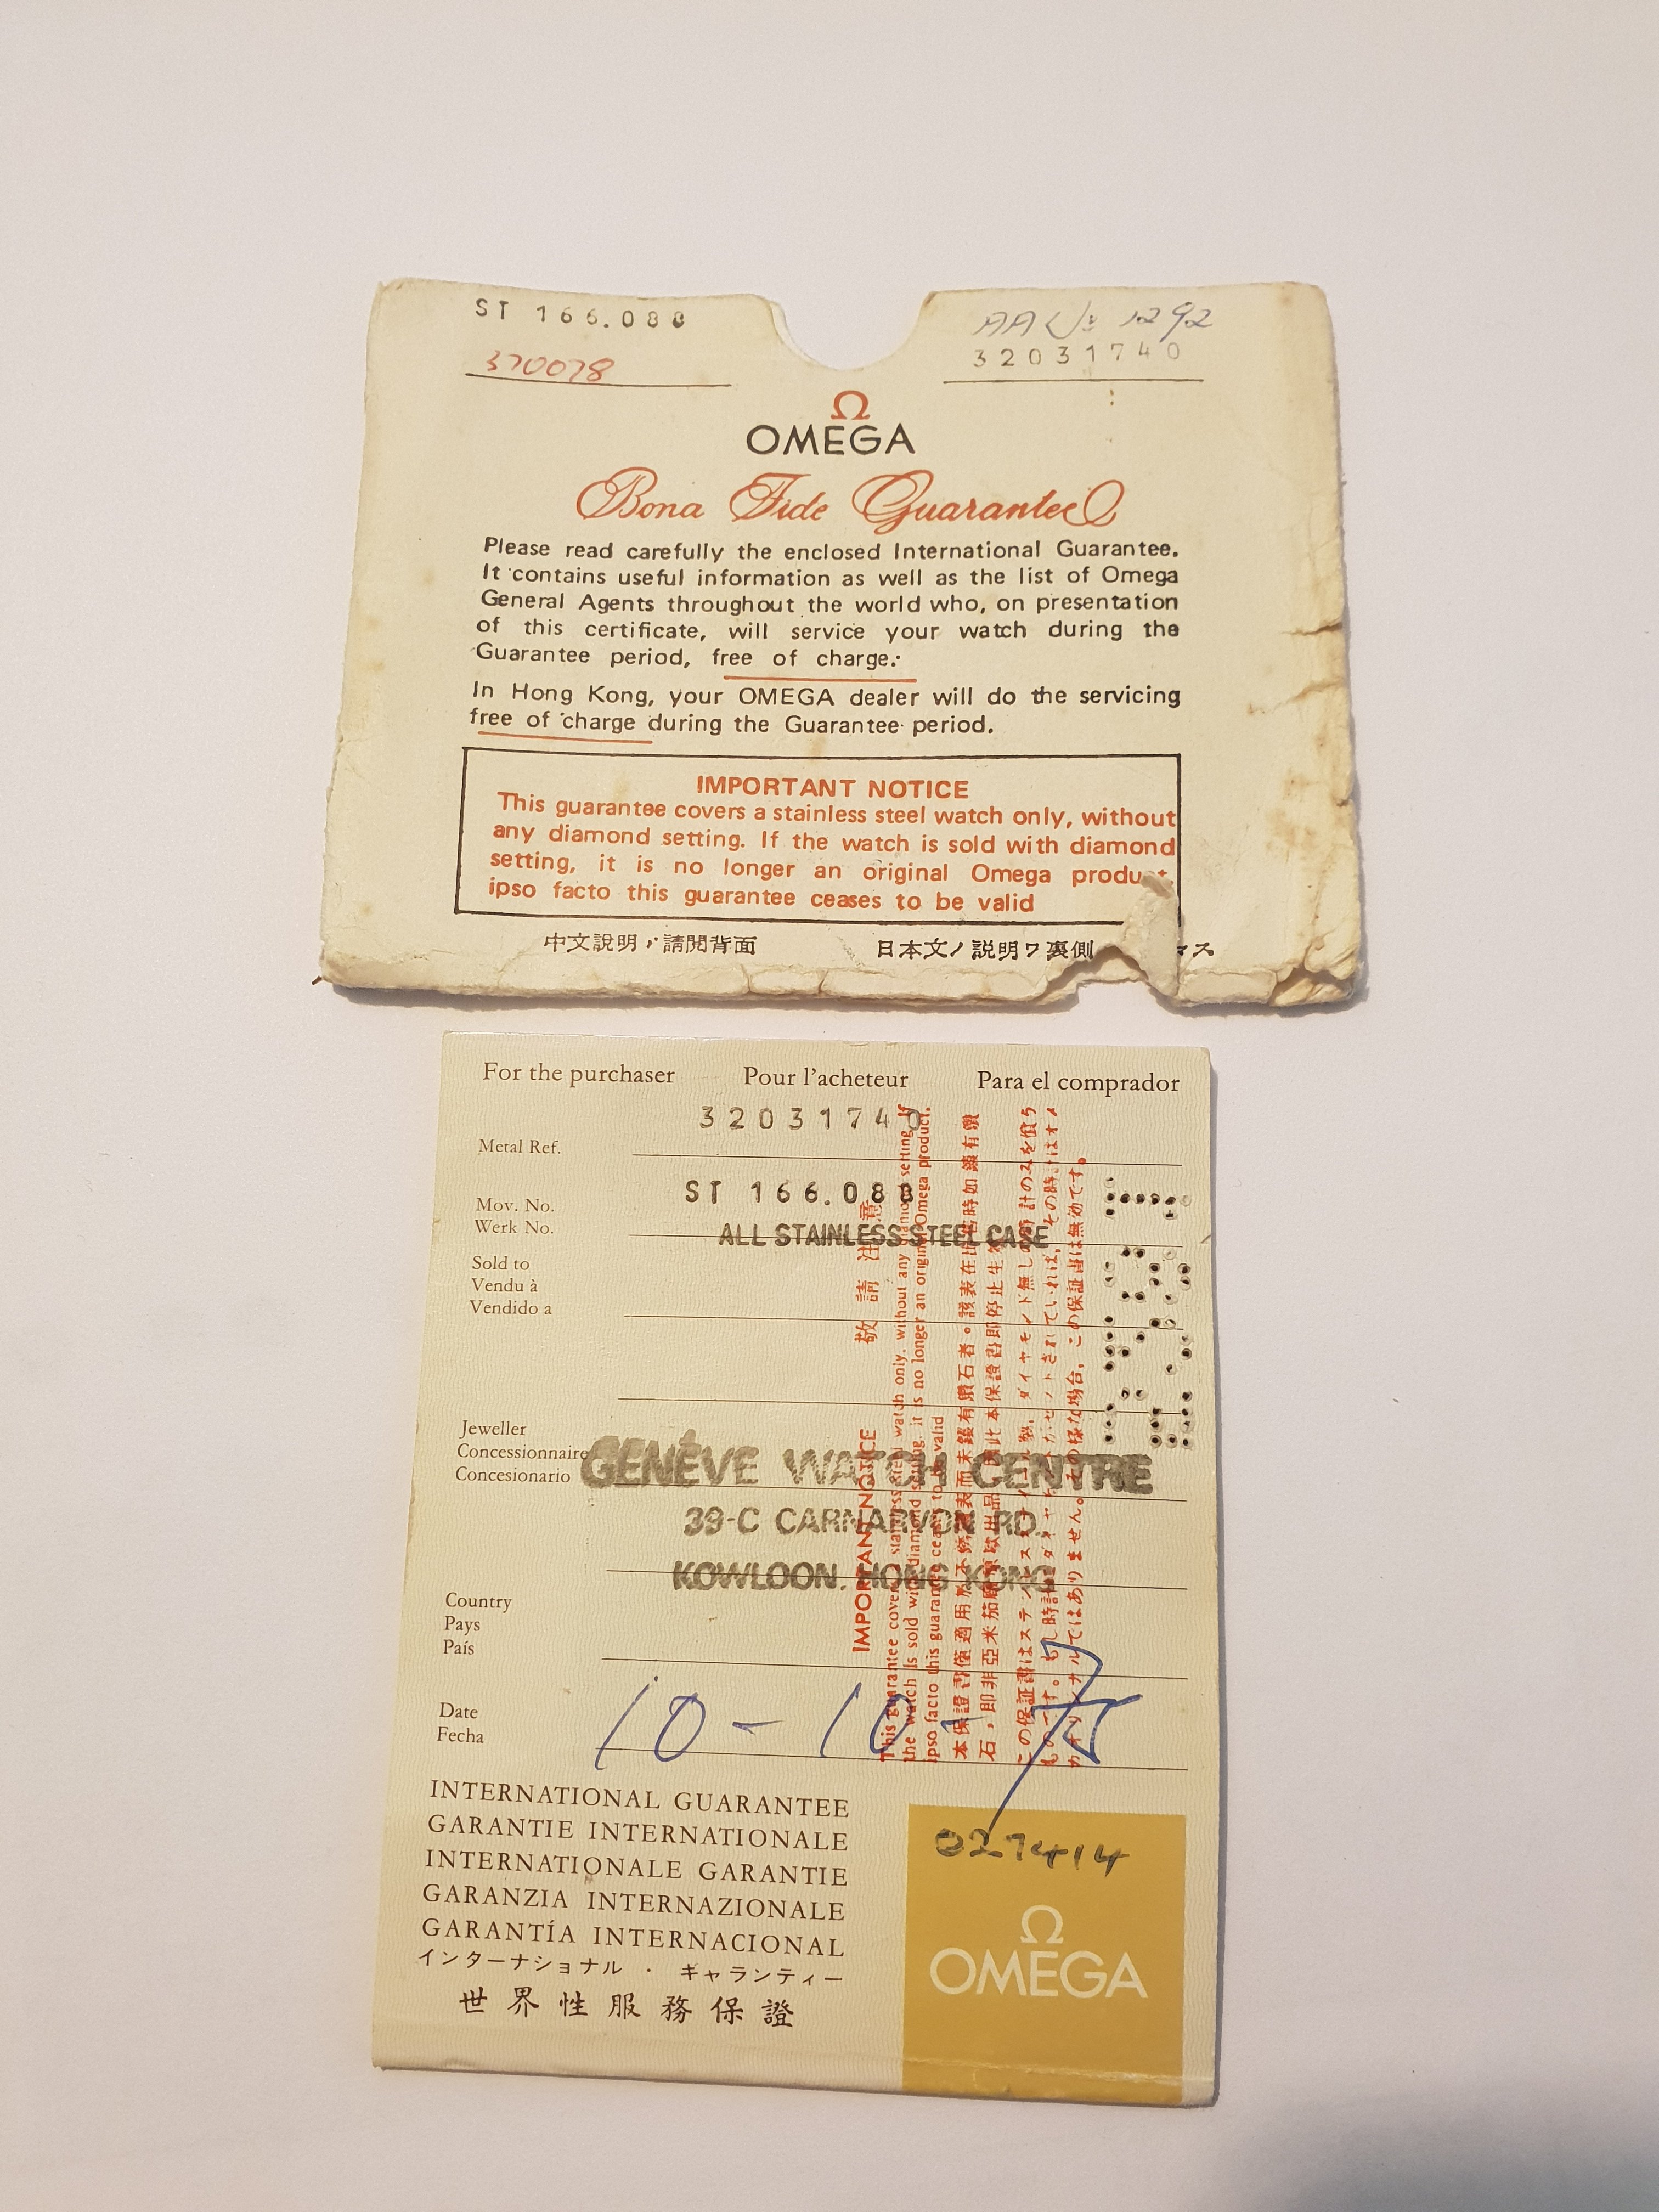 ST 166.088
370078
AA 1292
32031740
Ω
OMEGA
Bona Fide Guarantee
Please read carefully the enclosed International Guarantee.
It contains useful information as well as the list of Omega
General Agents throughout the world who, on presentation
of this certificate, will service your watch during the
Guarantee period, free of charge.
In Hong Kong, your OMEGA dealer will do the servicing
free of charge during the Guarantee period.
IMPORTANT NOTICE
This guarantee covers a stainless steel watch only, without
any diamond setting. If the watch is sold with diamond
setting, it is no longer an original Omega product,
ipso facto this guarantee ceases to be valid
中文說明，請閱背面
日本文ノ説明ワ裏側
For the purchaser Pour l'acheteur Para el comprador
32031740
Metal Ref.
ST 166.088
Mov. No.
Werk No.
ALL STAINLESS STEEL CASE
Sold to
Vendu à
Vendido a
Jeweller
Concessionnaire
Concesionario
GENÈVE WATCH CENTRE
39-C CARNARVON RD.
KOWLOON, HONG KONG
Country
Pays
País
Date
Fecha
10-10-75
敬請注意
IMPORTANT NOTICE
This guarantee covers a stainless steel watch only, without any diamond setting. If
the watch is sold with diamond setting, it is no longer an original Omega product.
ipso facto this guarantee ceases to be valid
INTERNATIONAL GUARANTEE
GARANTIE INTERNATIONALE
INTERNATIONALE GARANTIE
GARANZIA INTERNAZIONALE
GARANTÍA INTERNACIONAL
インターナショナル・ギャランティー
世界性服務保證
027414
Ω
OMEGA